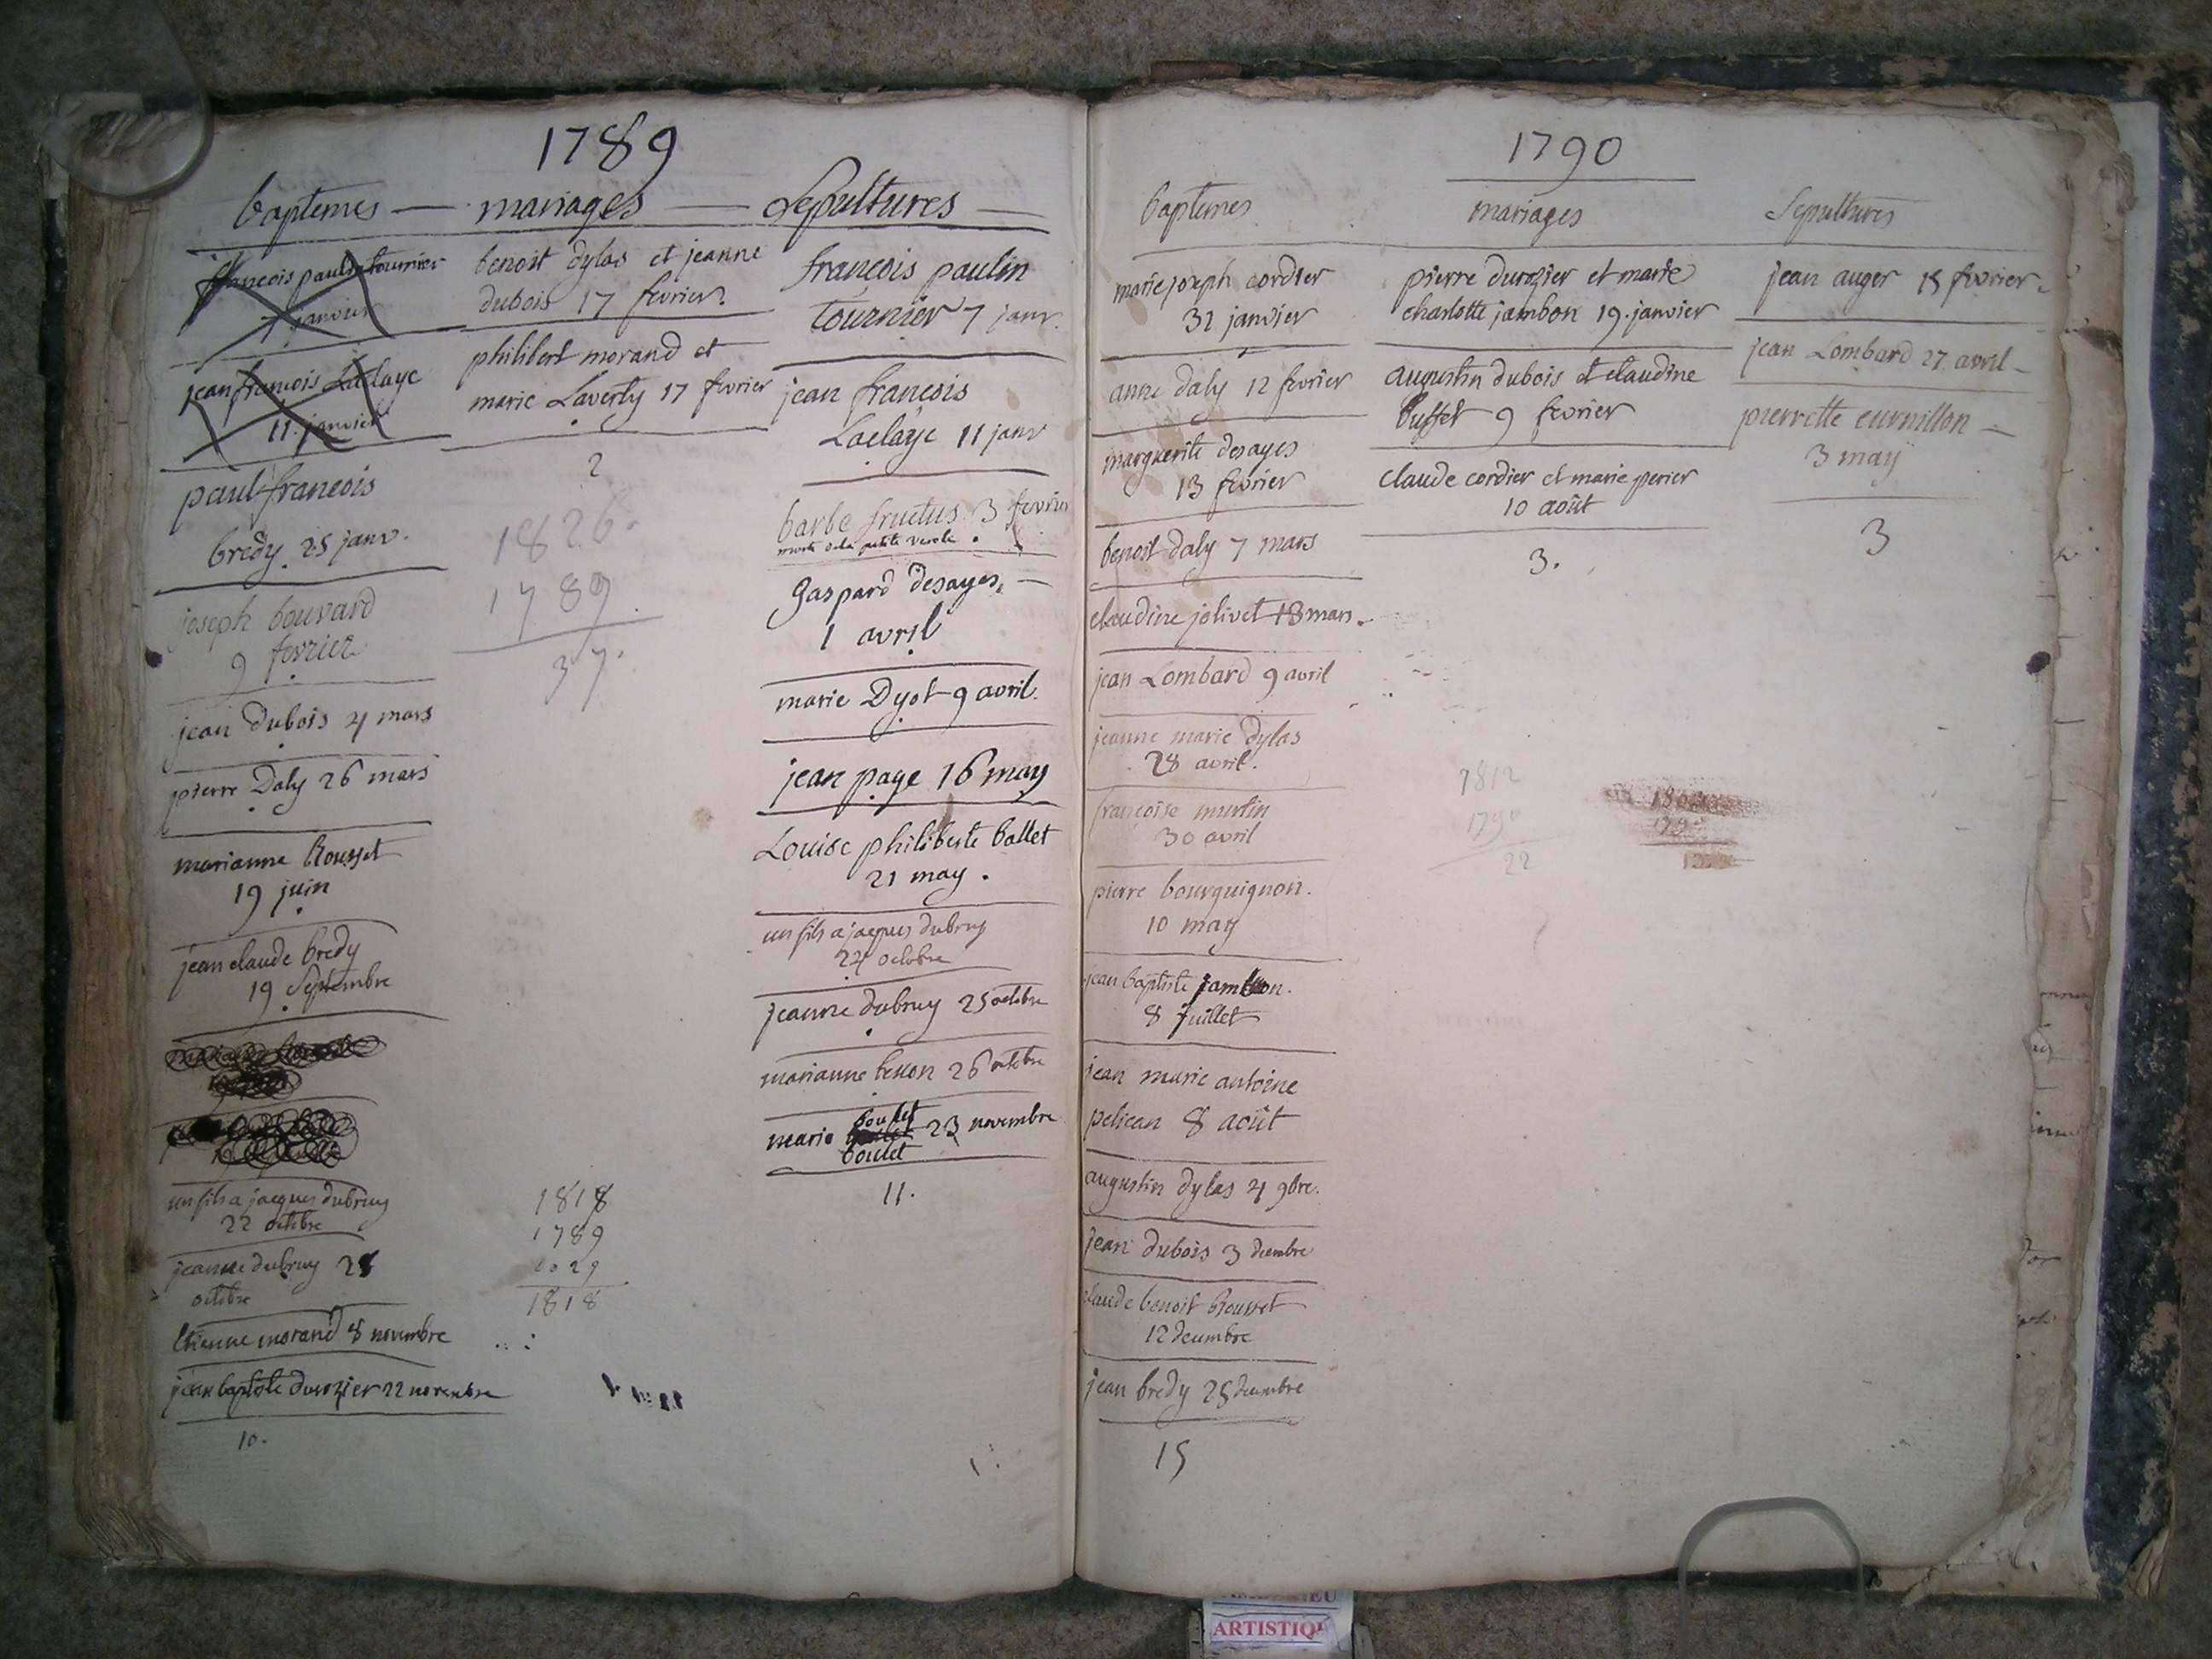 1789
baptemes — mariages — Sepultures —
françois paulin tournier
7 janvier
jean françois Laclaye
11. janvier
paul françois
bredy. 25 janv.
joseph bouvard
9 fevrier
jean dubois 4 mars
pierre Daly 26 mars
marianne Rousset
19 juin
jean claude bredy
19 Septembre
un fils a jacques dubruy
22 octobre
jeanne dubruy 25
octobre
Etienne morand 8 novembre
jean baptiste durozier 22 novembre
10.
benoit dylas et jeanne
dubois 17 fevrier.
philibert morand et
marie Laverty 17 fevrier
2
1826.
1789.
37.
1818
1789
29
1818
françois paulin
tournier 7 janv.
jean françois
Laclaye 11 janv
barbe fructus 3 fevrier
morte de la petite verole.
gaspard desayes. —
1 avril
marie Dyot 9 avril.
jean page 16 may
Louise philiberte ballet
21 may.
un fils a jacques dubruy
22 octobre
jeanne dubruy 25 octobre
marianne 26 octobre
boulet
marie 23 novembre
boulet
11.
1790
baptemes mariages Sepultures
marie joseph cordier
31 janvier
anne daly 12 fevrier
marguerite desayes
13 fevrier
benoit daly 7 mars
claudine jolivet 18 mars.
jean Lombard 9 avril
jeanne marie dylas
28 avril.
françoise
30 avril
pierre bourguignon.
10 may
jean baptiste jambon.
8 juillet
jean marie antoine
pelican 8 août
augustin dylas 4 9bre.
jean dubois 3 decembre
claude benoit Rousset
12 decembre
jean bredy 25 decembre
15
pierre durozier et marie
charlotte jambon 19. janvier
augustin dubois et claudine
buffet 9 fevrier
claude cordier et marie perier
10 août
3.
1812
1790
22
1790
jean auger 15 fevrier.
jean Lombard 27 avril —
pierrette curnillon —
3 may
3
ARTISTIQ